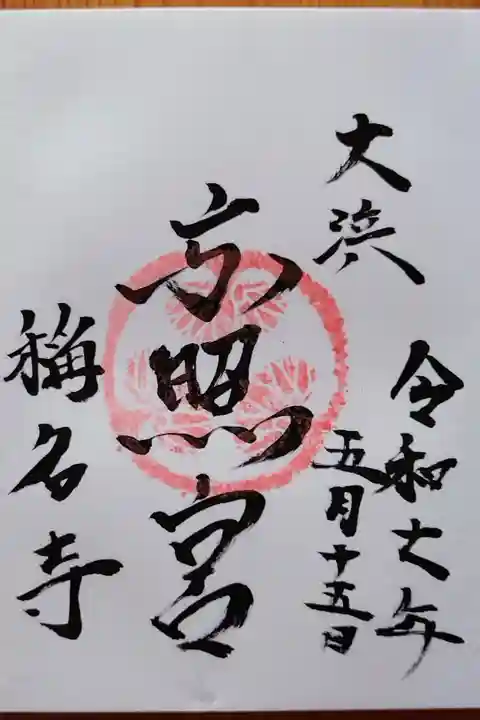 大浜
東照宮
令和六年
五月十五日
稱名寺